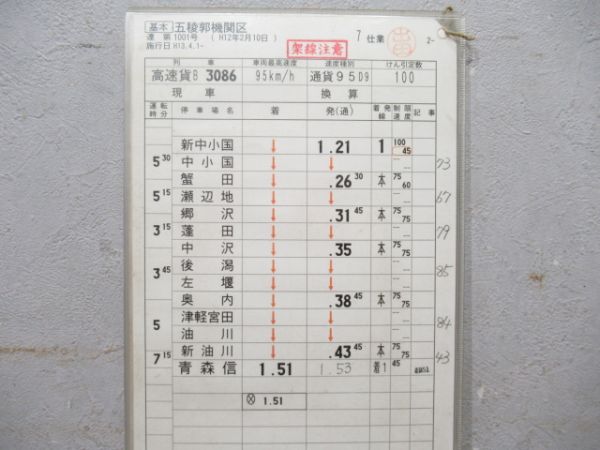 基本 五稜郭機関区
達 第1001号 ( H12年2月10日 ) 7 仕業 2-
施行日 H13.4.1-
架線注意
列車 車両最高速度 速度種別 けん引定数
高速貨B 3086 95km/h 通貨95D9 100
現車 換算
運転時分 停車場名 着 発(通) 着発線 制限速度 記事
新中小国 ↓ 1.21 1 100 45
5 30 中小国 ↓ ↓ 73
蟹田 ↓ .26 30 本 75 60
5 15 瀬辺地 ↓ ↓ 67
郷沢 ↓ .31 45 本 75 75
3 15 蓬田 ↓ ↓ 79
中沢 ↓ .35 本 75 75
3 45 後潟 ↓ ↓ 85
左堰 ↓ ↓
奥内 ↓ .38 45 本 75 75
5 津軽宮田 ↓ ↓ 84
油川 ↓ ↓
7 15 新油川 ↓ .43 45 本 75 75 43
青森信 1.51 1.53 着1 45
⊗ 1.51